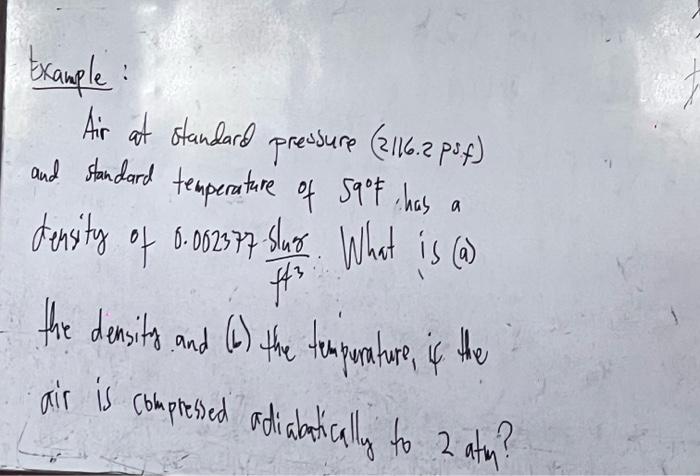 Example :
Air at standard pressure (2116.2 psf)
and standard temperature of 59°F has a
density of 0.002377 slug/ft³. What is (a)
the density and (b) the temperature, if the
air is compressed adiabatically to 2 atm?